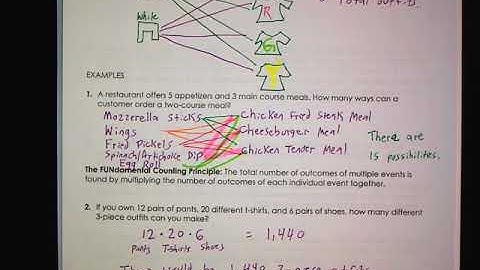 While
R
G
Y
Total outfits.
EXAMPLES
1. A restaurant offers 5 appetizers and 3 main course meals. How many ways can a
customer order a two-course meal?
Mozzerella Sticks Chicken Fried Steak Meal
Wings Cheeseburger Meal
Fried Pickels Chicken Tender Meal
Spinach/Artichoke Dip
Egg Roll
There are
15 possibilities.
The FUNdamental Counting Principle: The total number of outcomes of multiple events is
found by multiplying the number of outcomes of each individual event together.
2. If you own 12 pairs of pants, 20 different t-shirts, and 6 pairs of shoes, how many different
3-piece outfits can you make?
12 · 20 · 6 = 1,440
Pants T-shirts Shoes